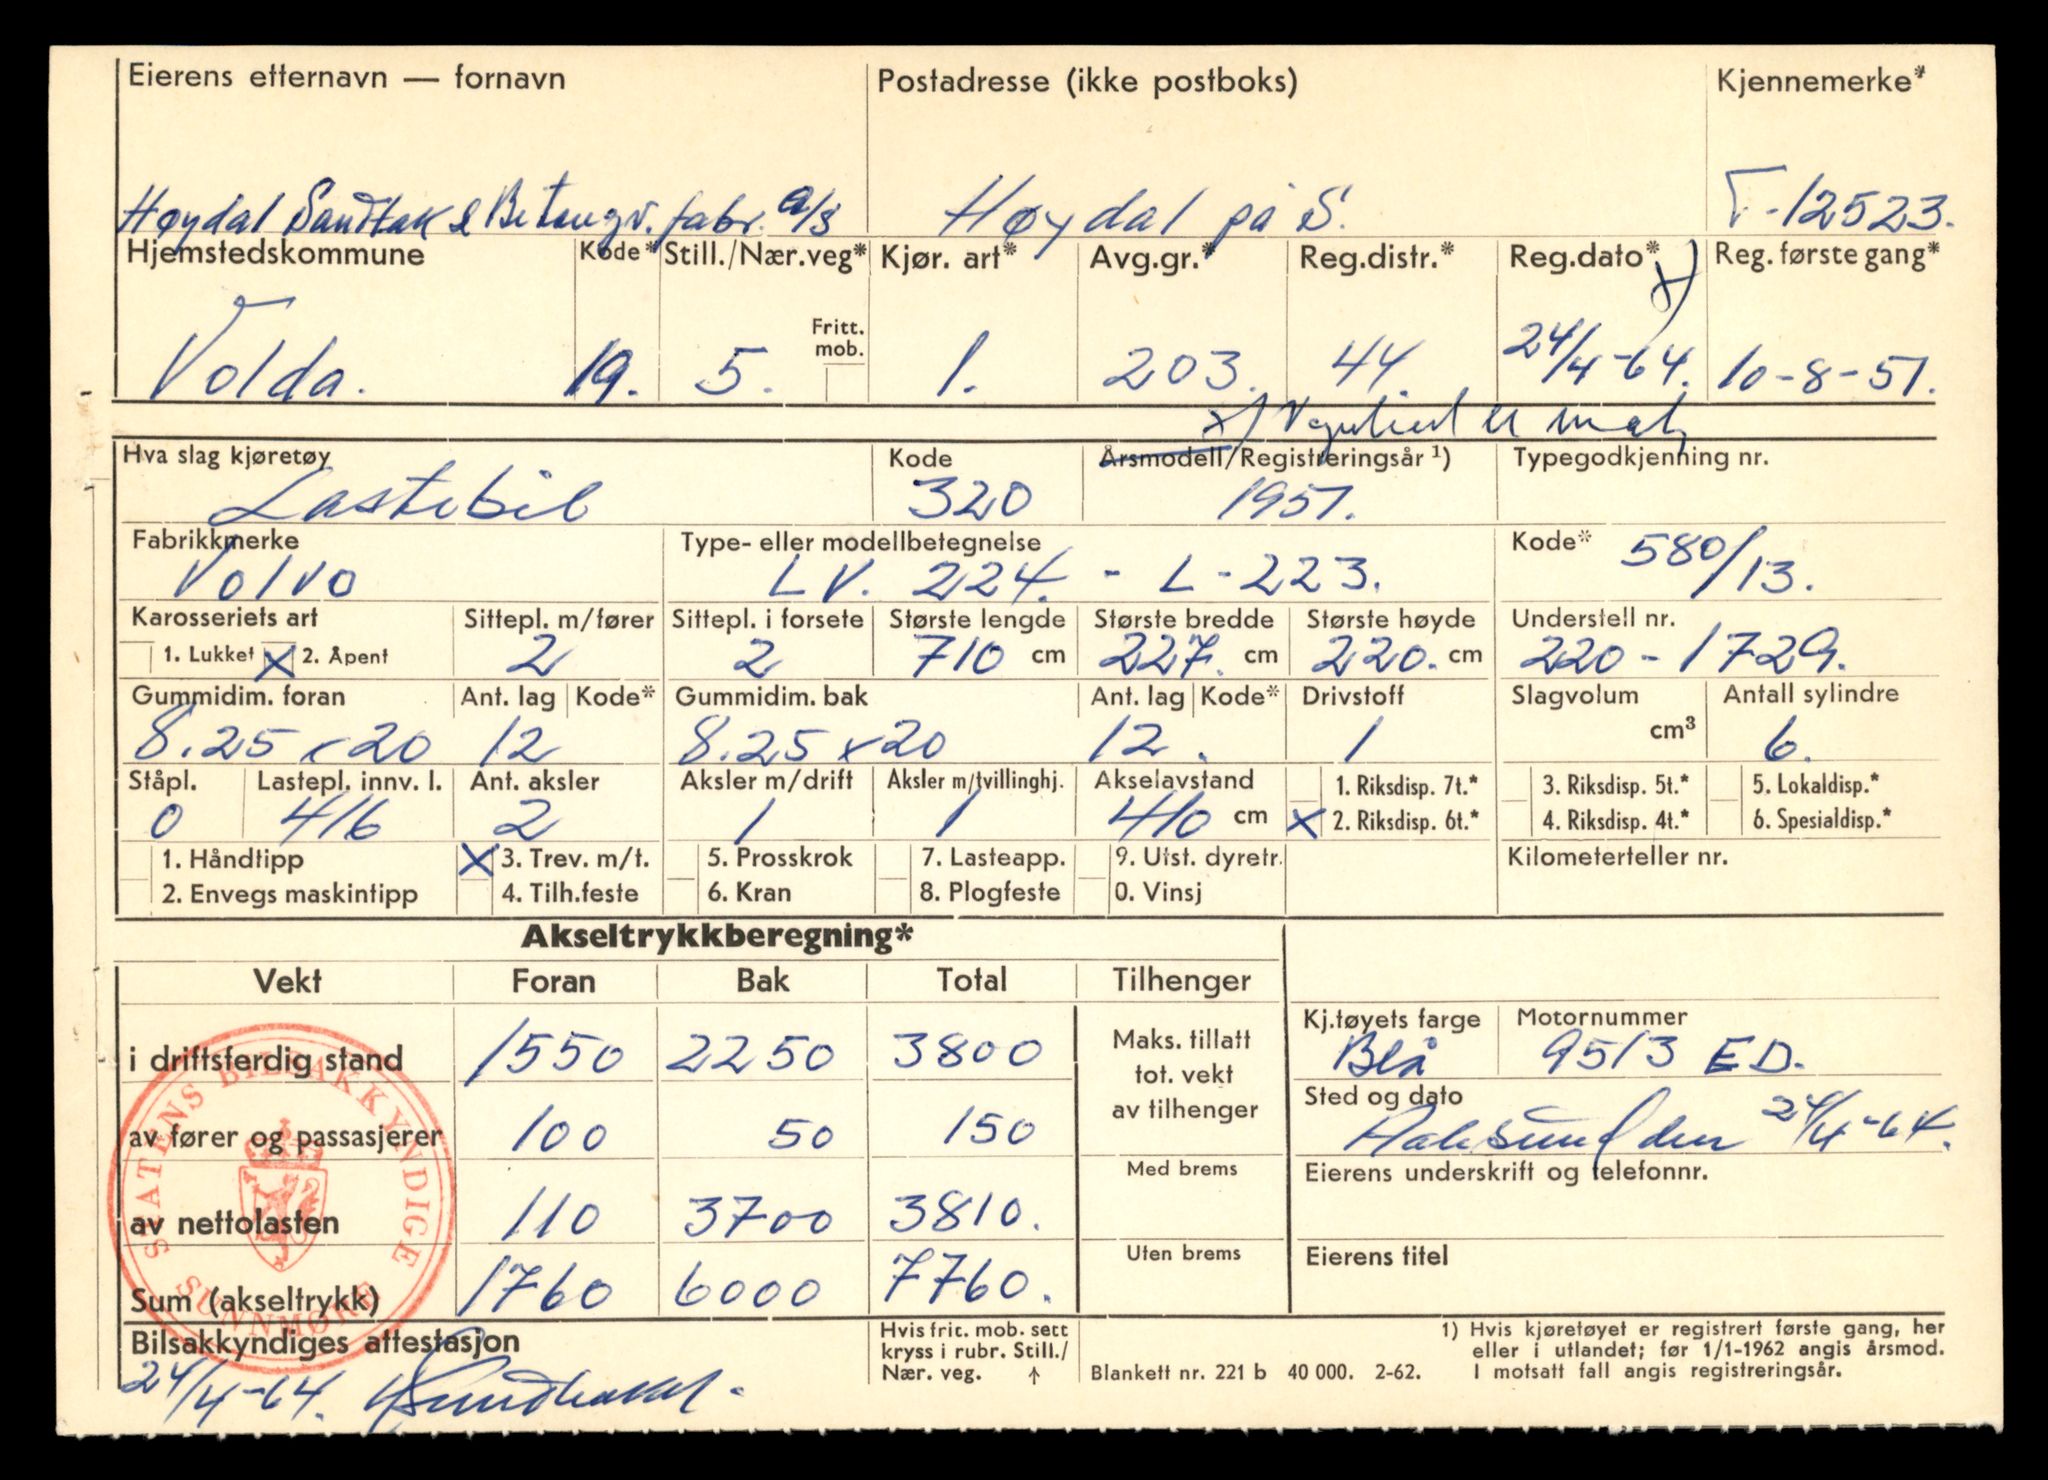 Eierens etternavn — fornavn Postadresse (ikke postboks) Kjennemerke*
Høydal Sandtak & Betongv. fabr. a/s Høydal på S. T-12523.
Hjemstedskommune Kode* Still./Nær.veg* Kjør. art* Avg.gr.* Reg.distr.* Reg.dato* x) Reg. første gang*
Fritt. mob.
Volda. 19. 5. 1. 203. 44. 24/4-64. 10-8-51.
x) er
Hva slag kjøretøy Kode Årsmodell/Registreringsår ¹) Typegodkjenning nr.
Lastebil 320 1951.
Fabrikkmerke Type- eller modellbetegnelse Kode*
Volvo LV. 224. - L-223. 580/13.
Karosseriets art Sittepl. m/fører Sittepl. i forsete Største lengde Største bredde Største høyde Understell nr.
1. Lukket X 2. Åpent 2 2 710 cm 227. cm 220. cm 220-1729.
Gummidim. foran Ant. lag Kode* Gummidim. bak Ant. lag Kode* Drivstoff Slagvolum Antall sylindre
8.25 x 20 12 8.25 x 20 12. 1 cm³ 6.
Ståpl. Lastepl. innv. l. Ant. aksler Aksler m/drift Aksler m/tvillinghj. Akselavstand 1. Riksdisp. 7t.* 3. Riksdisp. 5t.* 5. Lokaldisp.*
0 416 2 1 1 410 cm X 2. Riksdisp. 6t.* 4. Riksdisp. 4t.* 6. Spesialdisp.*
1. Håndtipp X 3. Trev. m/t. 5. Prosskrok 7. Lasteapp. 9. Utst. dyretr. Kilometerteller nr.
2. Envegs maskintipp 4. Tilh.feste 6. Kran 8. Plogfeste 0. Vinsj
Akseltrykkberegning*
Vekt Foran Bak Total Tilhenger
Kj.tøyets farge Motornummer
i driftsferdig stand 1550 2250 3800 Maks. tillatt tot. vekt av tilhenger Blå 9513 ED.
Sted og dato
av fører og passasjerer 100 50 150 24/4-64.
Med brems Eierens underskrift og telefonnr.
av nettolasten 110 3700 3810.
Uten brems Eierens titel
Sum (akseltrykk) 1760 6000 7760.
STATENS BILSAKKYNDIGE
SUNNMØRE
Bilsakkyndiges attestasjon
24/4-64.
Hvis frit. mob. sett
kryss i rubr. Still./
Nær. veg. ↑
Blankett nr. 221 b 40 000. 2-62.
1) Hvis kjøretøyet er registrert første gang, her
eller i utlandet; før 1/1-1962 angis årsmod.
I motsatt fall angis registreringsår.